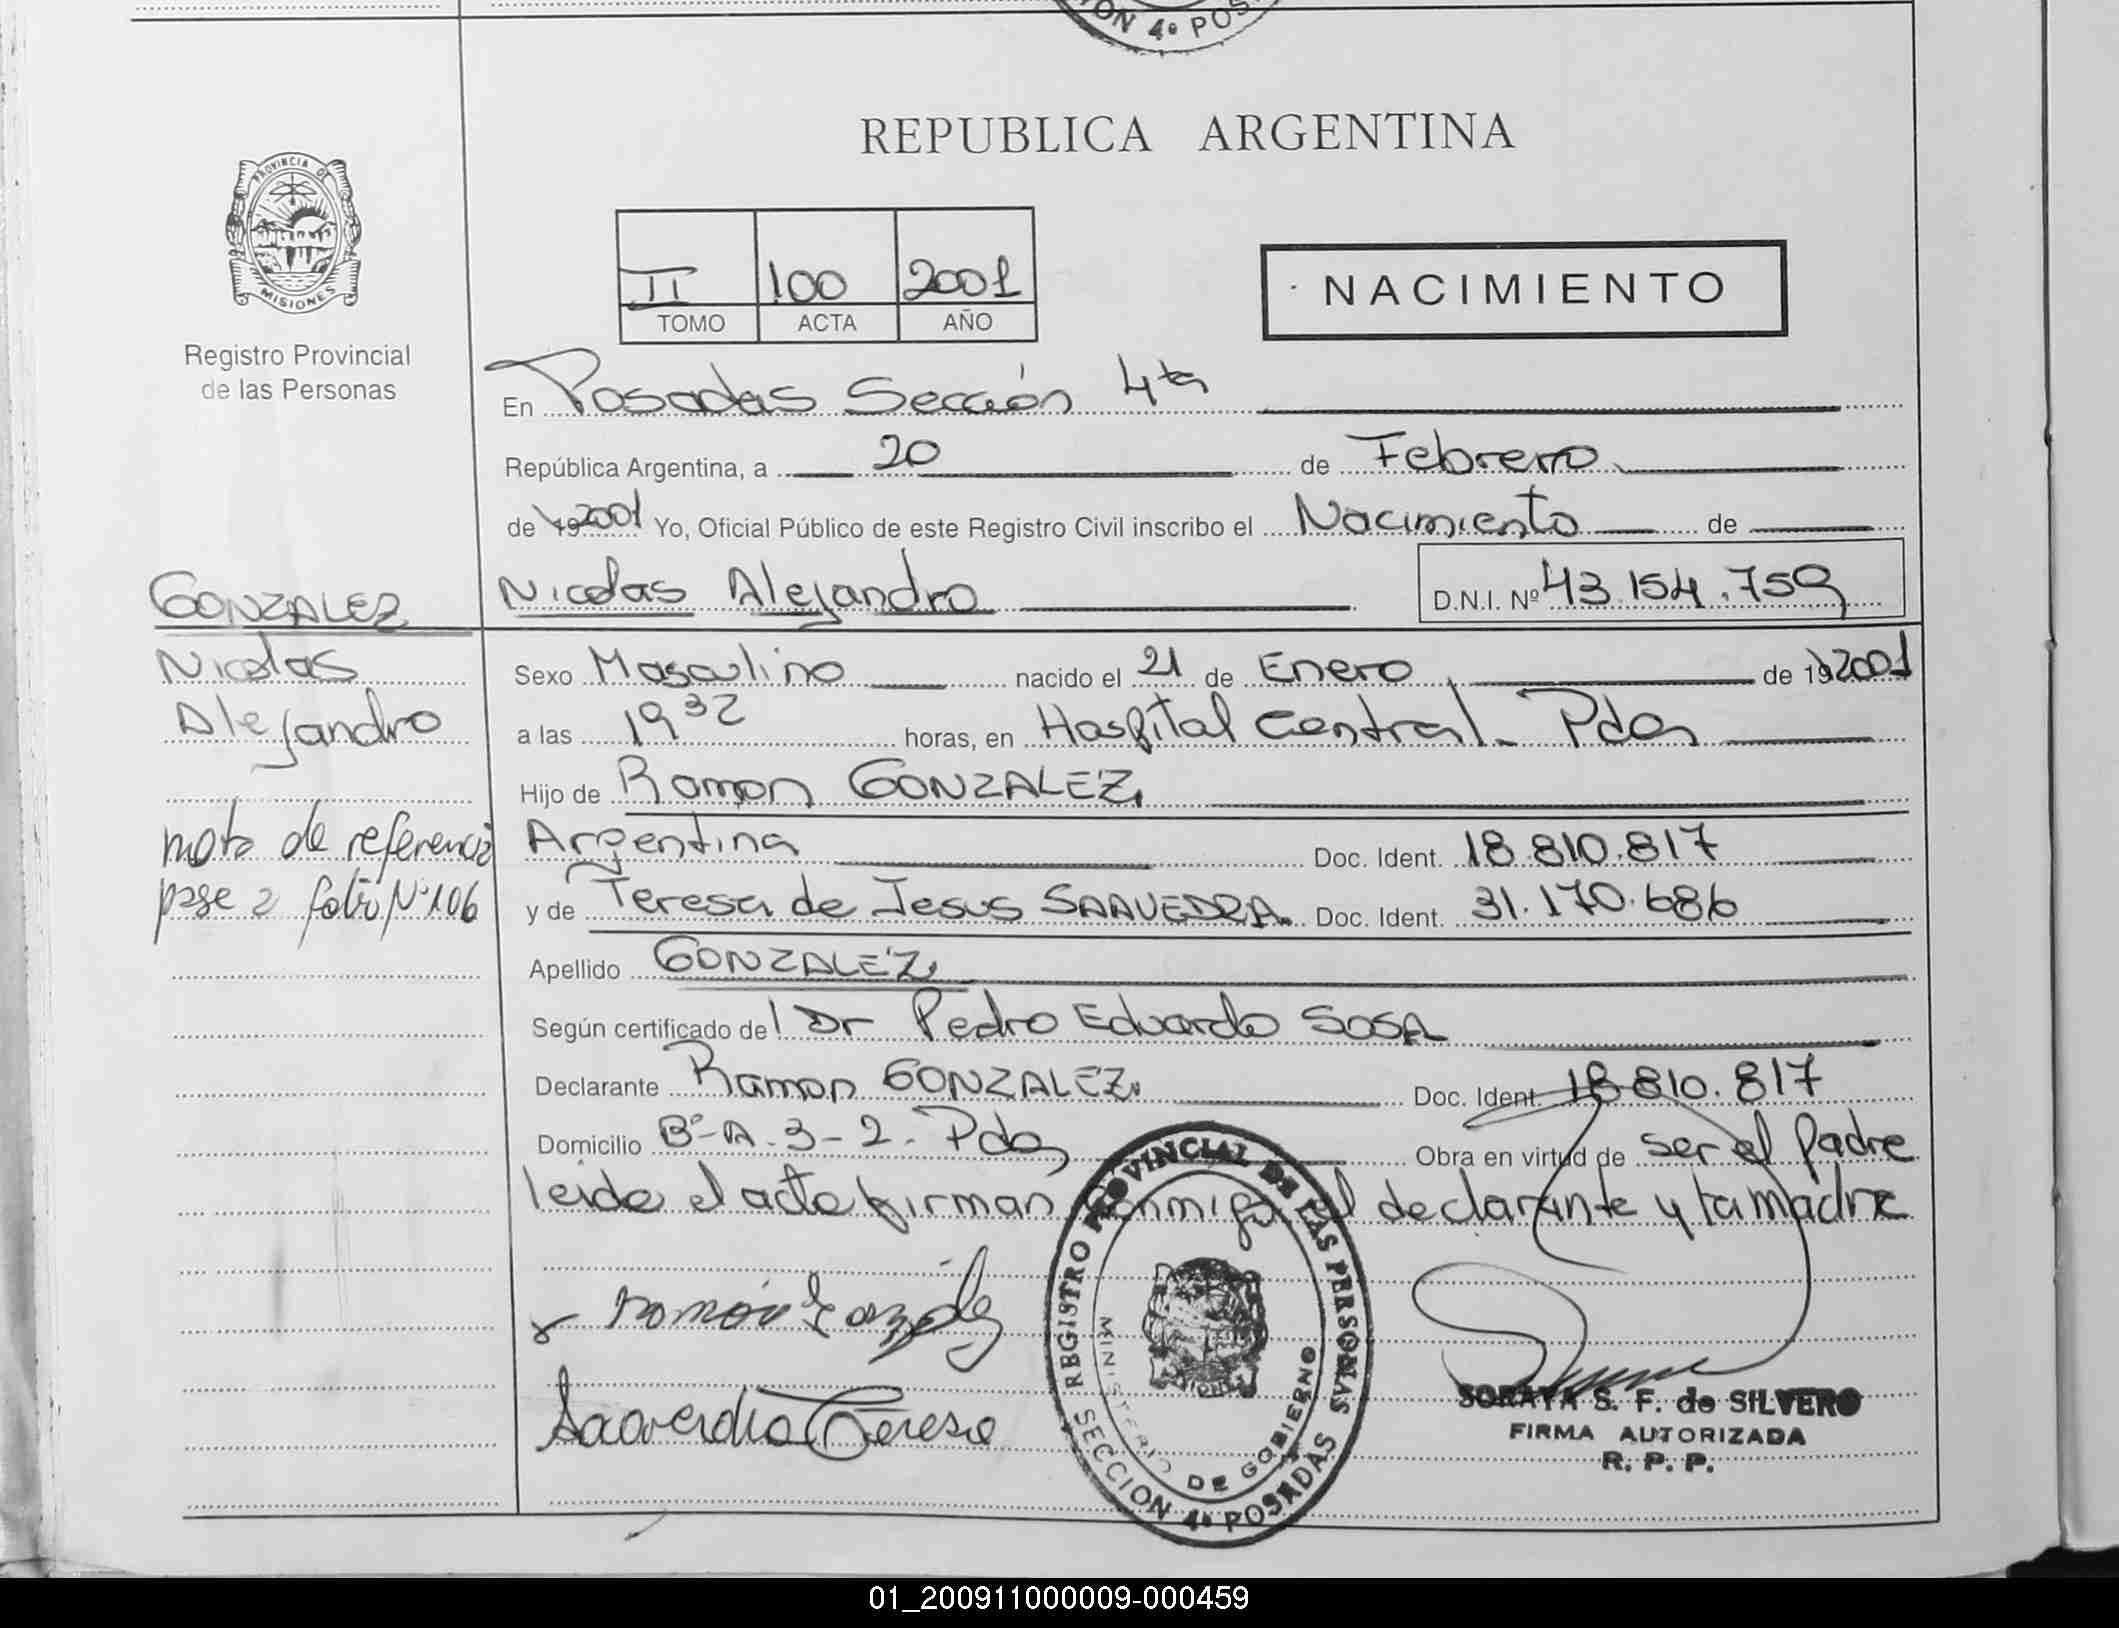 CION 4º POS
REPUBLICA ARGENTINA
PROVINCIA DE
MISIONES
II 100 2001
TOMO ACTA AÑO
NACIMIENTO
Registro Provincial
de las Personas
En Posadas Sección 4ta
República Argentina, a 20 de Febrero
de 19 2001 Yo, Oficial Público de este Registro Civil inscribo el Nacimiento de
Nicolas Alejandro D.N.I. Nº 43.154.759
GONZALEZ
Nicolas
Alejandro
nota de referencia
pase a folio Nº 106
Sexo Masculino nacido el 21 de Enero de 19 2001
a las 19 32 horas, en Hospital Central - Pdas
Hijo de Ramon GONZALEZ,
Argentina Doc. Ident. 18.810.817
y de Teresa de Jesus SAAVEDRA. Doc. Ident. 31.170.686
Apellido GONZALEZ,
Según certificado del Dr Pedro Eduardo SOSA
Declarante Ramon GONZALEZ. Doc. Ident. 18.810.817
Domicilio Bº-A-3-2-Pdas Obra en virtud de ser el padre
leida el acta firman conmigo el declarante y la madre
Ramón Gonzalez
Saavedra Teresa
REGISTRO PROVINCIAL DE LAS PERSONAS
MINISTERIO DE GOBIERNO
SECCION 4º POSADAS
SORAYA S. F. de SILVERO
FIRMA AUTORIZADA
R. P. P.
01_200911000009-000459